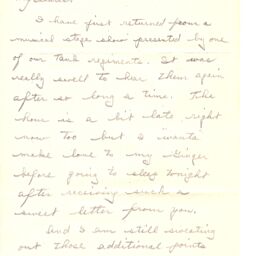 I have just returned from a
musical stage show presented by one
of our Tank regiments. It was
really swell to hear them again
after so long a time. The
hour is a bit late right
now too but I wanta
make love to my Ginger
before going to sleep tonight
after receiving such a
sweet letter from you.
And I am still sweating
out those additional points